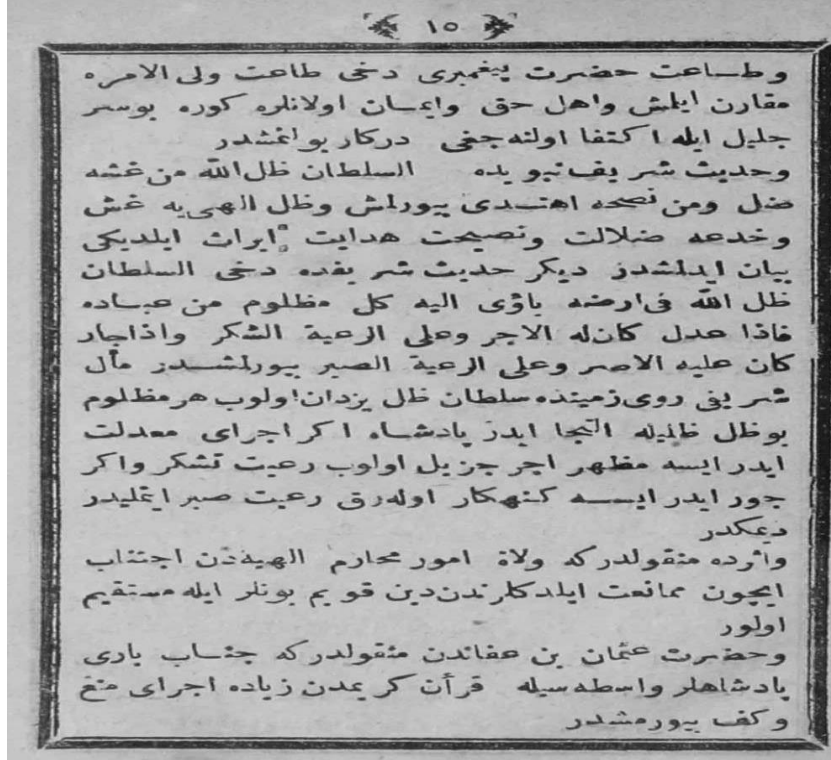 ١٥
وطاعت حضرت پیغمبری دخی طاعت ولی الامره
مقارن ایلمش واهل حق وایمان اولانلره کوره بوسر
جلیل ایله اکتفا اولنه جغی درکار بولنمشدر
وحدیث شریف نبویده السلطان ظل الله من غشه
ضل ومن نصحه اهتدی بیورلمش وظل الهی یه غش
وخدعه ضلالت ونصیحت هدایت ایراث ایلدیکی
بیان ایدلمشدر دیکر حدیث شریفده دخی السلطان
ظل الله فی ارضه یاؤی الیه کل مظلوم من عباده
فاذا عدل کان له الاجر وعلی الرعیة الشکر واذا جار
کان علیه الاصر وعلی الرعیة الصبر بیورلمشدر مآل
شریفی روی زمینده سلطان ظل یزدان اولوب هر مظلوم
بوظل ظلیله التجا ایدر پادشاه اکر اجرای معدلت
ایدر ایسه مظهر اجر جزیل اولوب رعیت تشکر واکر
جور ایدر ایسه کنهکار اوله رق رعیت صبر ایتملیدر
دیمکدر
واثرده منقولدرکه ولاة امور محارم الهیه دن اجتناب
ایچون ممانعت ایلدکلرندن دین قویم بونلر ایله مستقیم
اولور
وحضرت عثمان بن عفاندن منقولدرکه جناب باری
پادشاهلر واسطه سیله قرآن کریمدن زیاده اجرای منع
وکف بیورمشدر